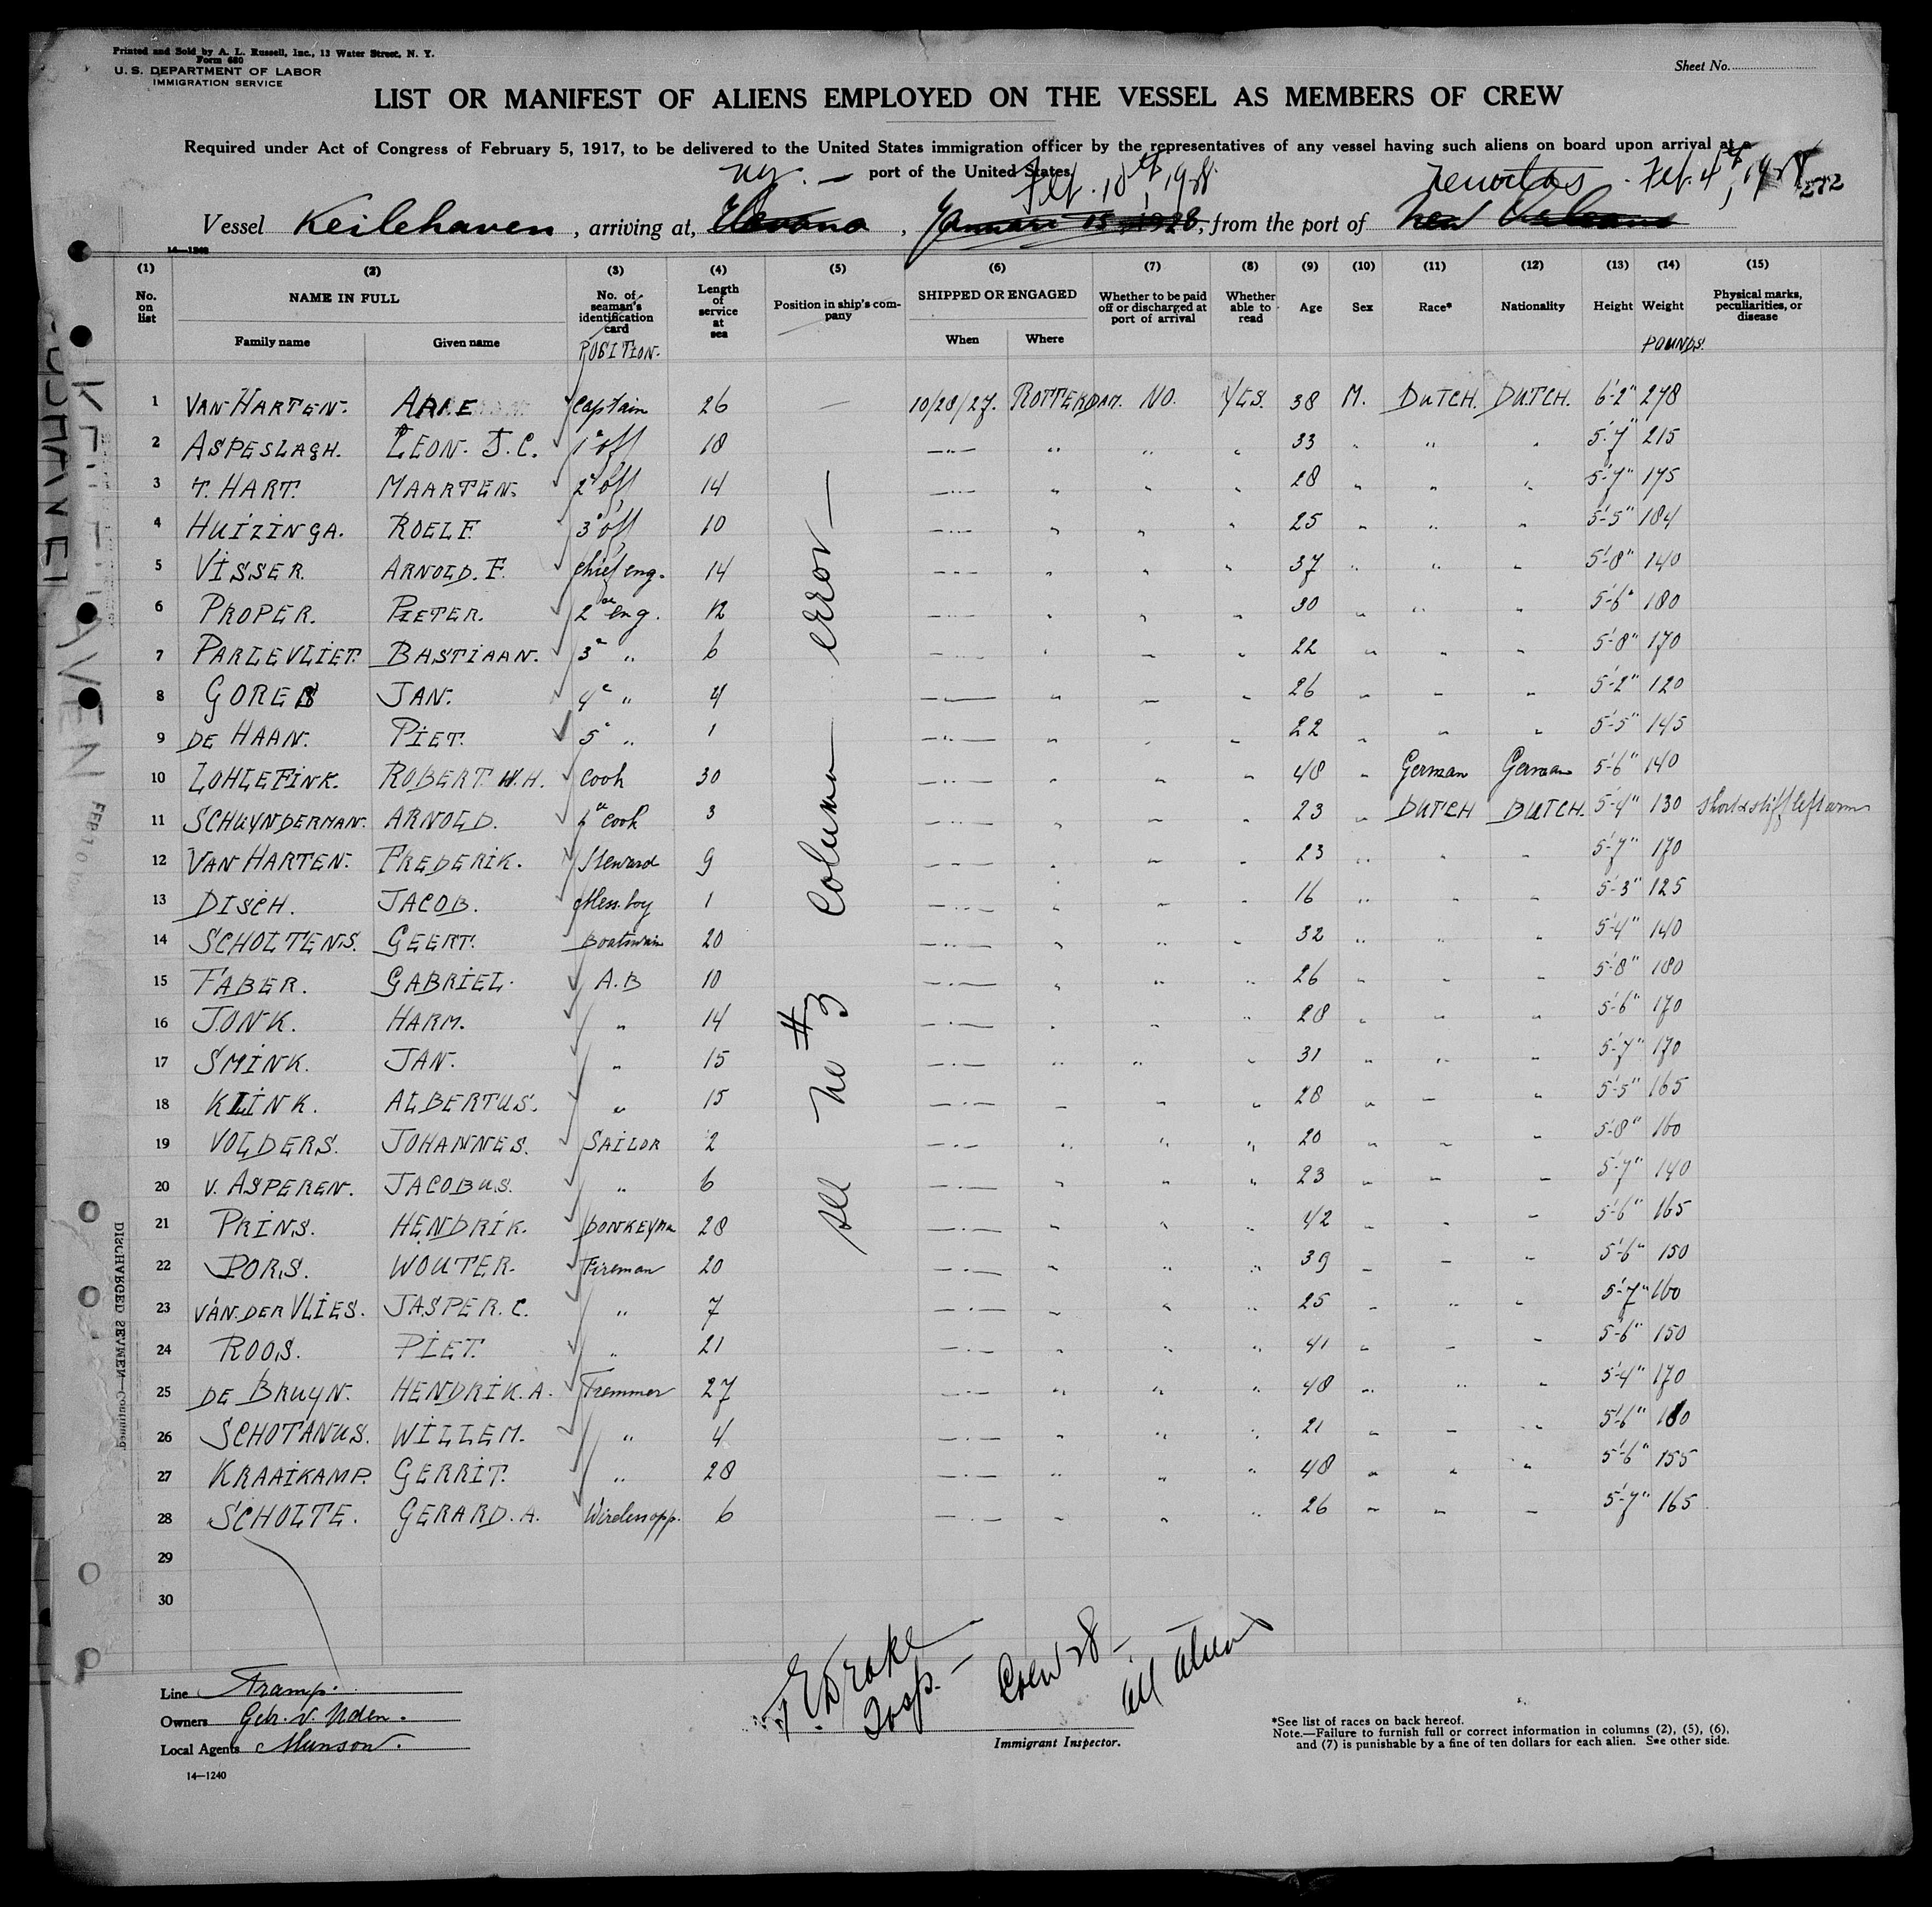 Printed and Sold by A. L. Russell, Inc., 13 Water Street, N. Y.
Form 680
U. S. DEPARTMENT OF LABOR
IMMIGRATION SERVICE
Sheet No.
LIST OR MANIFEST OF ALIENS EMPLOYED ON THE VESSEL AS MEMBERS OF CREW
Required under Act of Congress of February 5, 1917, to be delivered to the United States immigration officer by the representatives of any vessel having such aliens on board upon arrival at a
port of the United States
N.Y. — Feb. 10th, 1928. Feb. 4th, 1928
Vessel Keilehaven, arriving at, Havana, Januari 15 1928, from the port of New Orleans
14—1240
(1) (2) (3) (4) (5) (6) (7) (8) (9) (10) (11) (12) (13) (14) (15)
No. on list NAME IN FULL No. of seaman's identification card Length of service at sea Position in ship's company SHIPPED OR ENGAGED Whether to be paid off or discharged at port of arrival Whether able to read Age Sex Race* Nationality Height Weight Physical marks, peculiarities, or disease
Family name Given name POSITION. When Where POUNDS.
1 VAN HARTEN. ARIE Captain 26 — 10/28/27. ROTTERDAM. NO. YES. 38 M. DUTCH. DUTCH. 6'-2" 278
2 ASPESLAGH. LEON. J.C. 1e off 18 —"— " " " 33 " " " 5'-7" 215
3 'T. HART. MAARTEN. 2e off 14 —"— " " " 28 " " " 5'-7" 175
4 HUIZINGA. ROELF. 3e off 10 —"— " " " 25 " " " 5'-5" 184
5 VISSER. ARNOLD. F. Chief eng. 14 —"— " " " 37 " " " 5'-8" 140
6 PROPER. PIETER. 2de eng. 12 —"— " " " 30 " " " 5'-6" 180
7 PARLEVLIET. BASTIAAN. 3e " 6 —"— " " " 22 " " " 5'-8" 170
8 GOREES JAN. 4e " 4 —"— " " " 26 " " " 5'-2" 120
9 DE HAAN. PIET. 5e " 1 —"— " " " 22 " " " 5'-5" 145
10 LOHLEFINK. ROBERT. W.H. Cook 30 —"— " " " 48 " German German 5'-6" 140
11 SCHUYNDERMAN. ARNOLD. 2e Cook 3 —"— " " " 23 " DUTCH DUTCH. 5'-4" 130 short & stiff left arm
12 VAN HARTEN. FREDERIK. Steward 9 —"— " " " 23 " " " 5'-7" 170
13 DISCH. JACOB. Mess. boy 1 —"— " " " 16 " " " 5'-3" 125
14 SCHOLTENS. GEERT. Boatswain 20 —"— " " " 32 " " " 5'-4" 140
15 FABER. GABRIEL. A.B 10 —"— " " " 26 " " " 5'-8" 180
16 JONK. HARM. " 14 —"— " " " 28 " " " 5'-6" 170
17 SMINK. JAN. " 15 —"— " " " 31 " " " 5'-7" 170
18 KLINK. ALBERTUS. " 15 —"— " " " 28 " " " 5'-5" 165
19 VOLDERS. JOHANNES. SAILOR 2 —"— " " " 20 " " " 5'-8" 160
20 V. ASPEREN. JACOBUS. " 6 —"— " " " 23 " " " 5'-7" 140
21 PRINS. HENDRIK. DONKEYMA 28 —"— " " " 42 " " " 5'-6" 165
22 PORS. WOUTER. Fireman 20 —"— " " " 39 " " " 5'-6" 150
23 VAN. DER VLIES. JASPER. C. " 7 —"— " " " 25 " " " 5'-7" 160
24 ROOS. PIET. " 21 —"— " " " 41 " " " 5'-6" 150
25 DE BRUYN. HENDRIK. A. Tremmer 27 —"— " " " 48 " " " 5'-4" 170
26 SCHOTANUS. WILLEM. " 4 —"— " " " 21 " " " 5'-6" 180
27 KRAAIKAMP. GERRIT. " 28 —"— " " " 48 " " " 5'-6" 155
28 SCHOLTE. GERARD. A. Wireless opp. 6 —"— " " " 26 " " " 5'-7" 165
29
30
see no #3 Column — error —
Line Tramp.
Owners Geb. v. Uden.
Local Agents Munson.
14—1240
F E Drake
Insp. —
Crew 28 —
all aliens
Immigrant Inspector.
*See list of races on back hereof.
Note.—Failure to furnish full or correct information in columns (2), (5), (6),
and (7) is punishable by a fine of ten dollars for each alien. See other side.
DISCHARGED SEAMEN—Continued